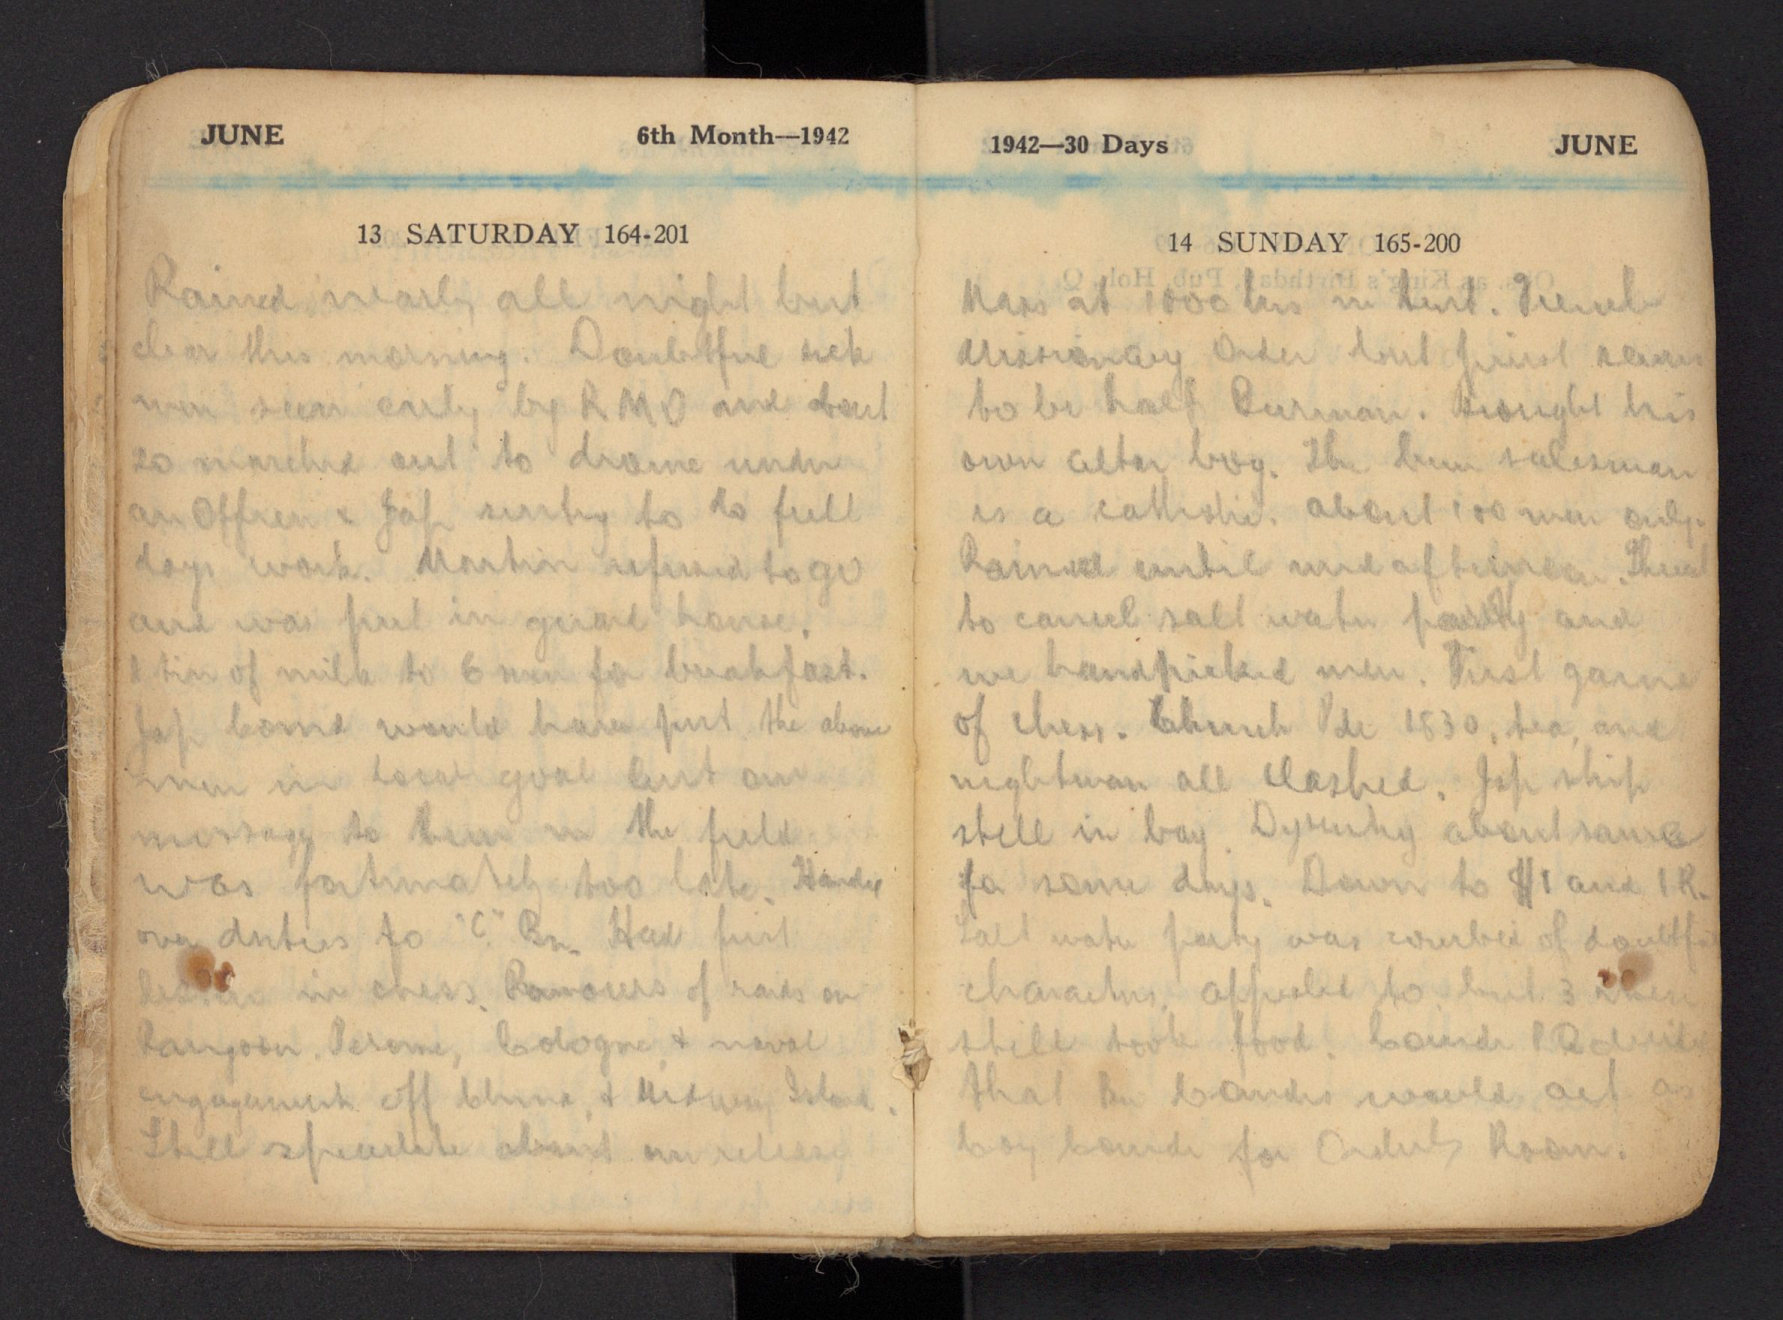 JUNE 6th Month—1942
13 SATURDAY 164-201
Rained nearly all night but
clear this morning. Doubtful sick
men seen early by RMO and about
20 marched out to drome under
an Officer & Jap sentry to do full
days work. Martin refused to go
and was put in guard house.
1 tin of milk to 6 men for breakfast.
Jap Comd would have put the above
men in local goal but our
message to them in the field
was fortunately too late. Handed
over duties to "C" Bn. Had first
lesson in chess. Rumours of raids on
Rangoon, Cologne, & naval
engagement off China, & Midway Island.
Still speculate about our release
1942—30 Days JUNE
14 SUNDAY 165-200
Mass at 1000 hrs in tent. French
Missionary Order but priest seems
to be half Burman. Brought his
own altar boy. The bun salesman
is a catholic. About 100 men only.
Rained until mid afternoon. Threat
to cancel salt water party and
we handpicked men. First game
of chess. Church Pde 1830, tea, and
nightman all clashed. Jap ship
still in bay. Dysentry about same
for some days. Down to $1 and 1 R.
Salt water party was combed of doubtful
characters, appealed to, but 3 men
still took food. Comdr decided
that Bn Comdrs would act as
Coy Comdr for Orderly Room.